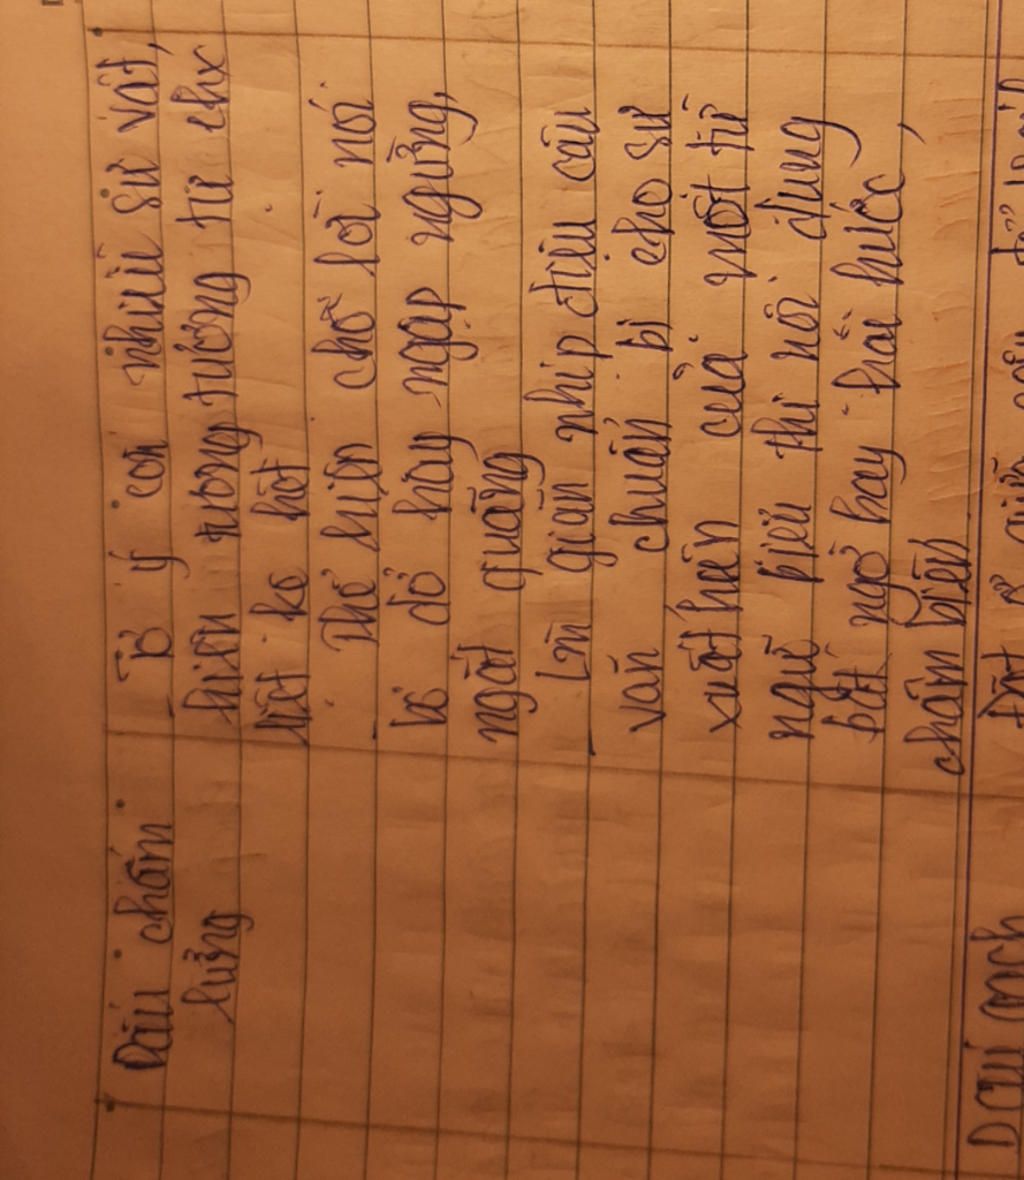 Dấu chấm
lửng
- Tỏ ý còn nhiều sự vật,
hiện tượng tương tự chx
liệt kê hết
- Thể hiện chỗ lời nói
bỏ dở hay ngập ngừng,
ngắt quãng
- Làm giãn nhịp điệu câu
văn chuẩn bị cho sự
xuất hiện của một từ
ngữ biểu thị nội dung
bất ngờ hay hài hước,
châm biếm
Dấu
Đặt ở giữa